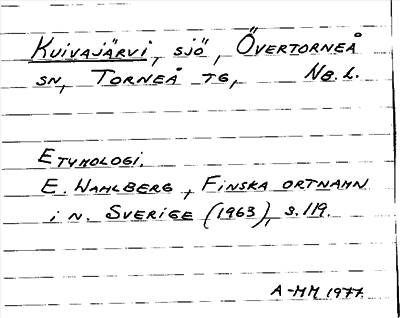 Kuivajärvi, sjö, Övertorneå
sn, Torneå tg, Nb. l.
Etymologi.
E. Wahlberg, Finska ortnamn
i n. Sverige (1963), s. 119.
A-MM 1977.